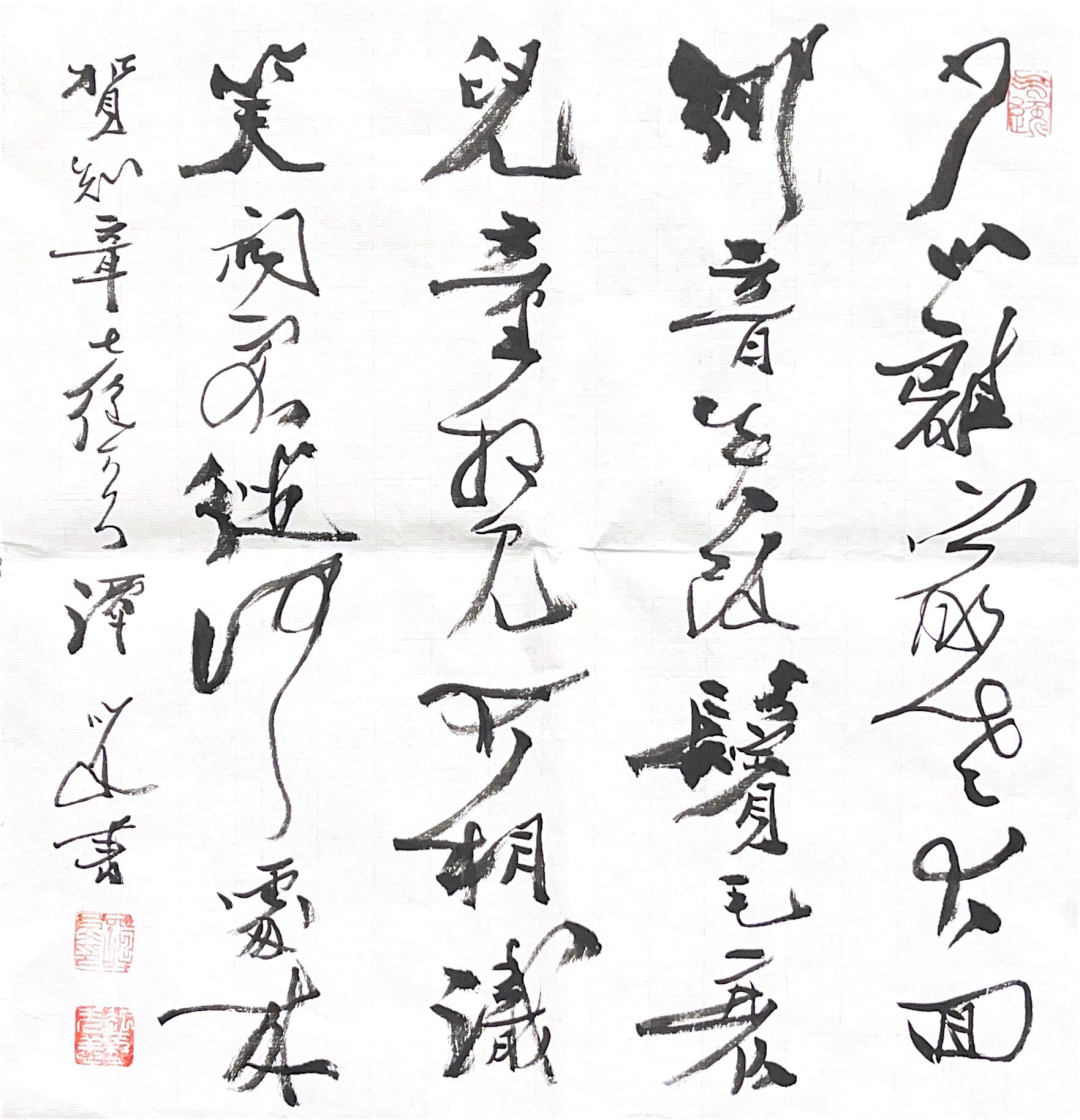 少小離家老大回
鄉音無改鬢毛衰
兒童相見不相識
笑問客從何處來
賀知章七 潭 書